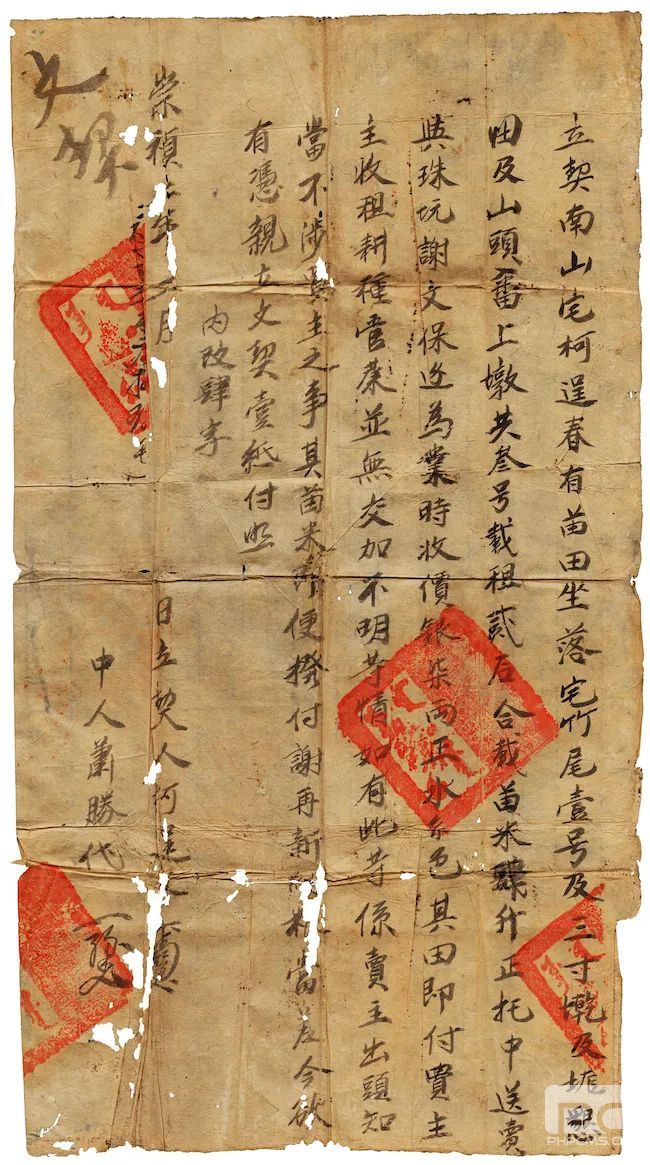 立契南山宅柯逞春有苗田坐落宅竹尾壹号及三寸墘及垢墾
田及山頭畬上墩共叁号載租貳石合載苗米肆升正托中送賣
與珠坑謝文保邊為業時收價銀柒両正水糸色其田即付買主
主收租耕種管業並無交加不明等情如有此等係賣主出頭知
當不涉買主之事其苗米即便撥付謝再新 當差今欲
有憑親立文契壹紙付照
內改肆字
崇禎 年 月
日立契人柯
中人蕭勝代